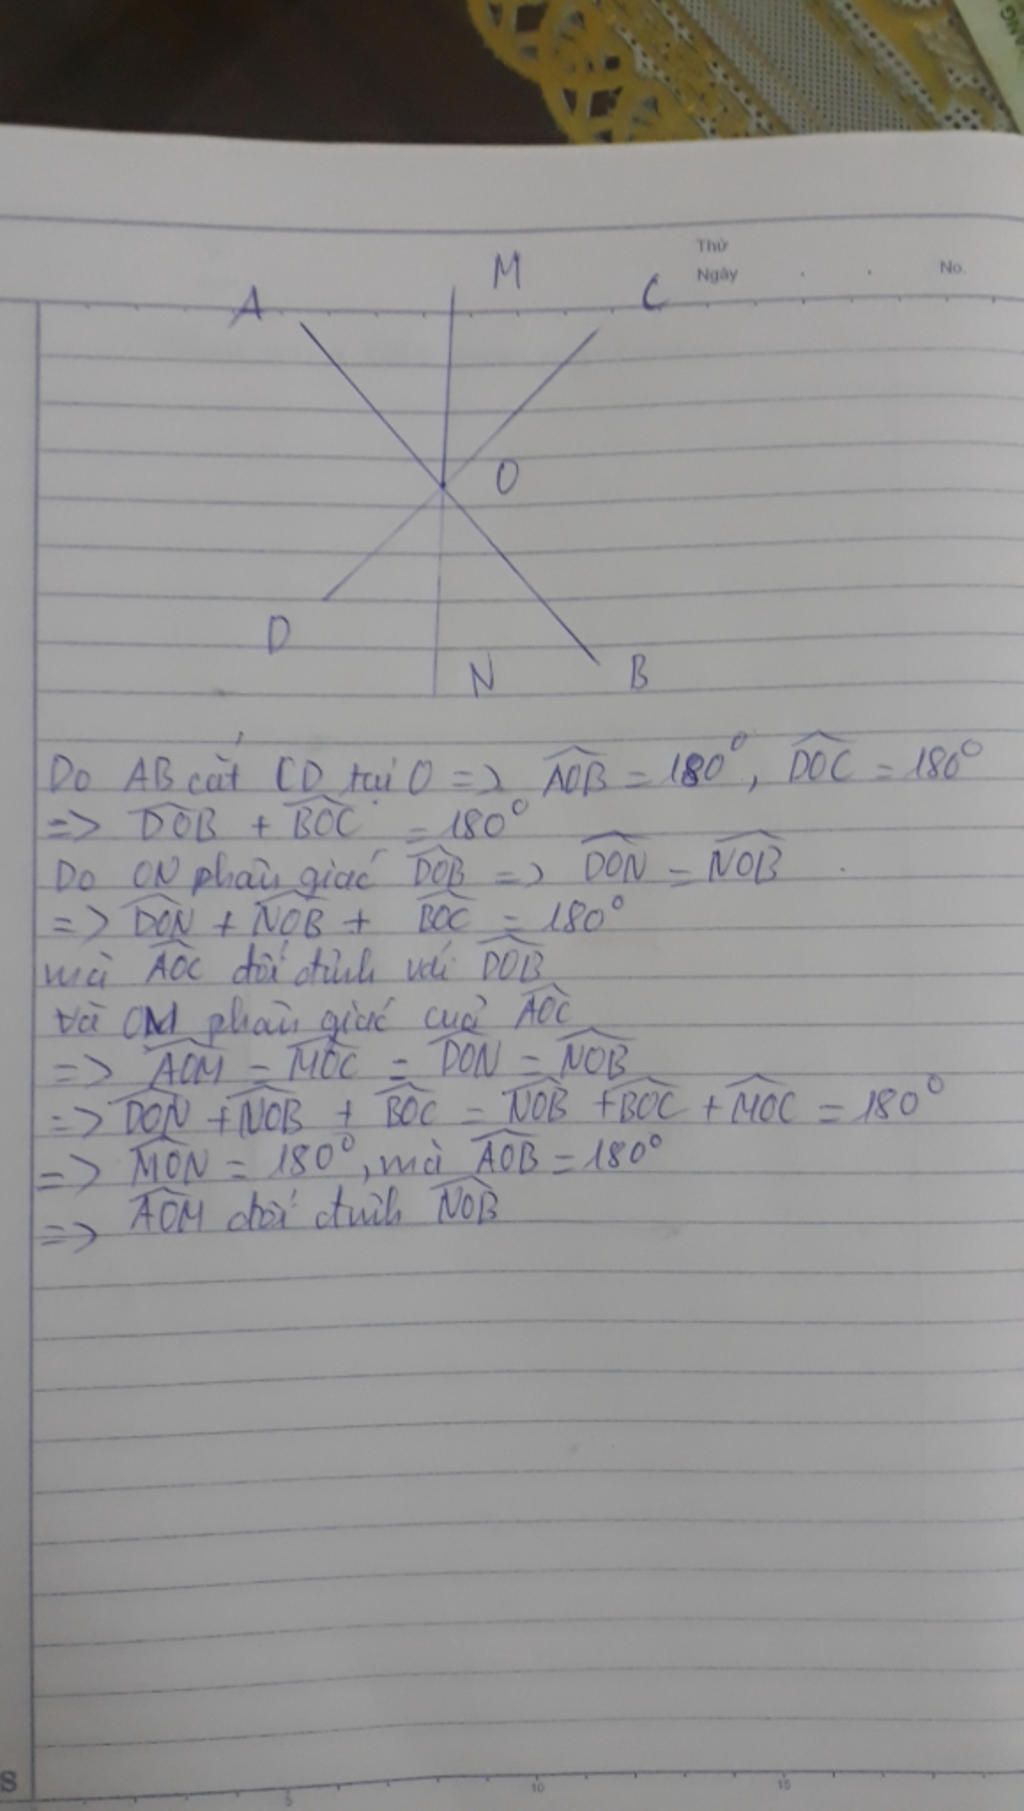 ANG
Thứ
Ngày . . No.
M
A
C
O
D
N
B
Do AB cắt CD tại O => \widehat{AOB} = 180°, \widehat{DOC} = 180°
=> \widehat{DOB} + \widehat{BOC} = 180°
Do ON phân giác \widehat{DOB} => \widehat{DON} = \widehat{NOB}
=> \widehat{DON} + \widehat{NOB} + \widehat{BOC} = 180°
mà \widehat{AOC} đối đỉnh với \widehat{DOB}
và OM phân giác của \widehat{AOC}
=> \widehat{AOM} = \widehat{MOC} = \widehat{DON} = \widehat{NOB}
=> \widehat{DON} + \widehat{NOB} + \widehat{BOC} = \widehat{NOB} + \widehat{BOC} + \widehat{MOC} = 180°
=> \widehat{MON} = 180°, mà \widehat{AOB} = 180°
=> \widehat{AOM} đối đỉnh \widehat{NOB}
S 5 10 15